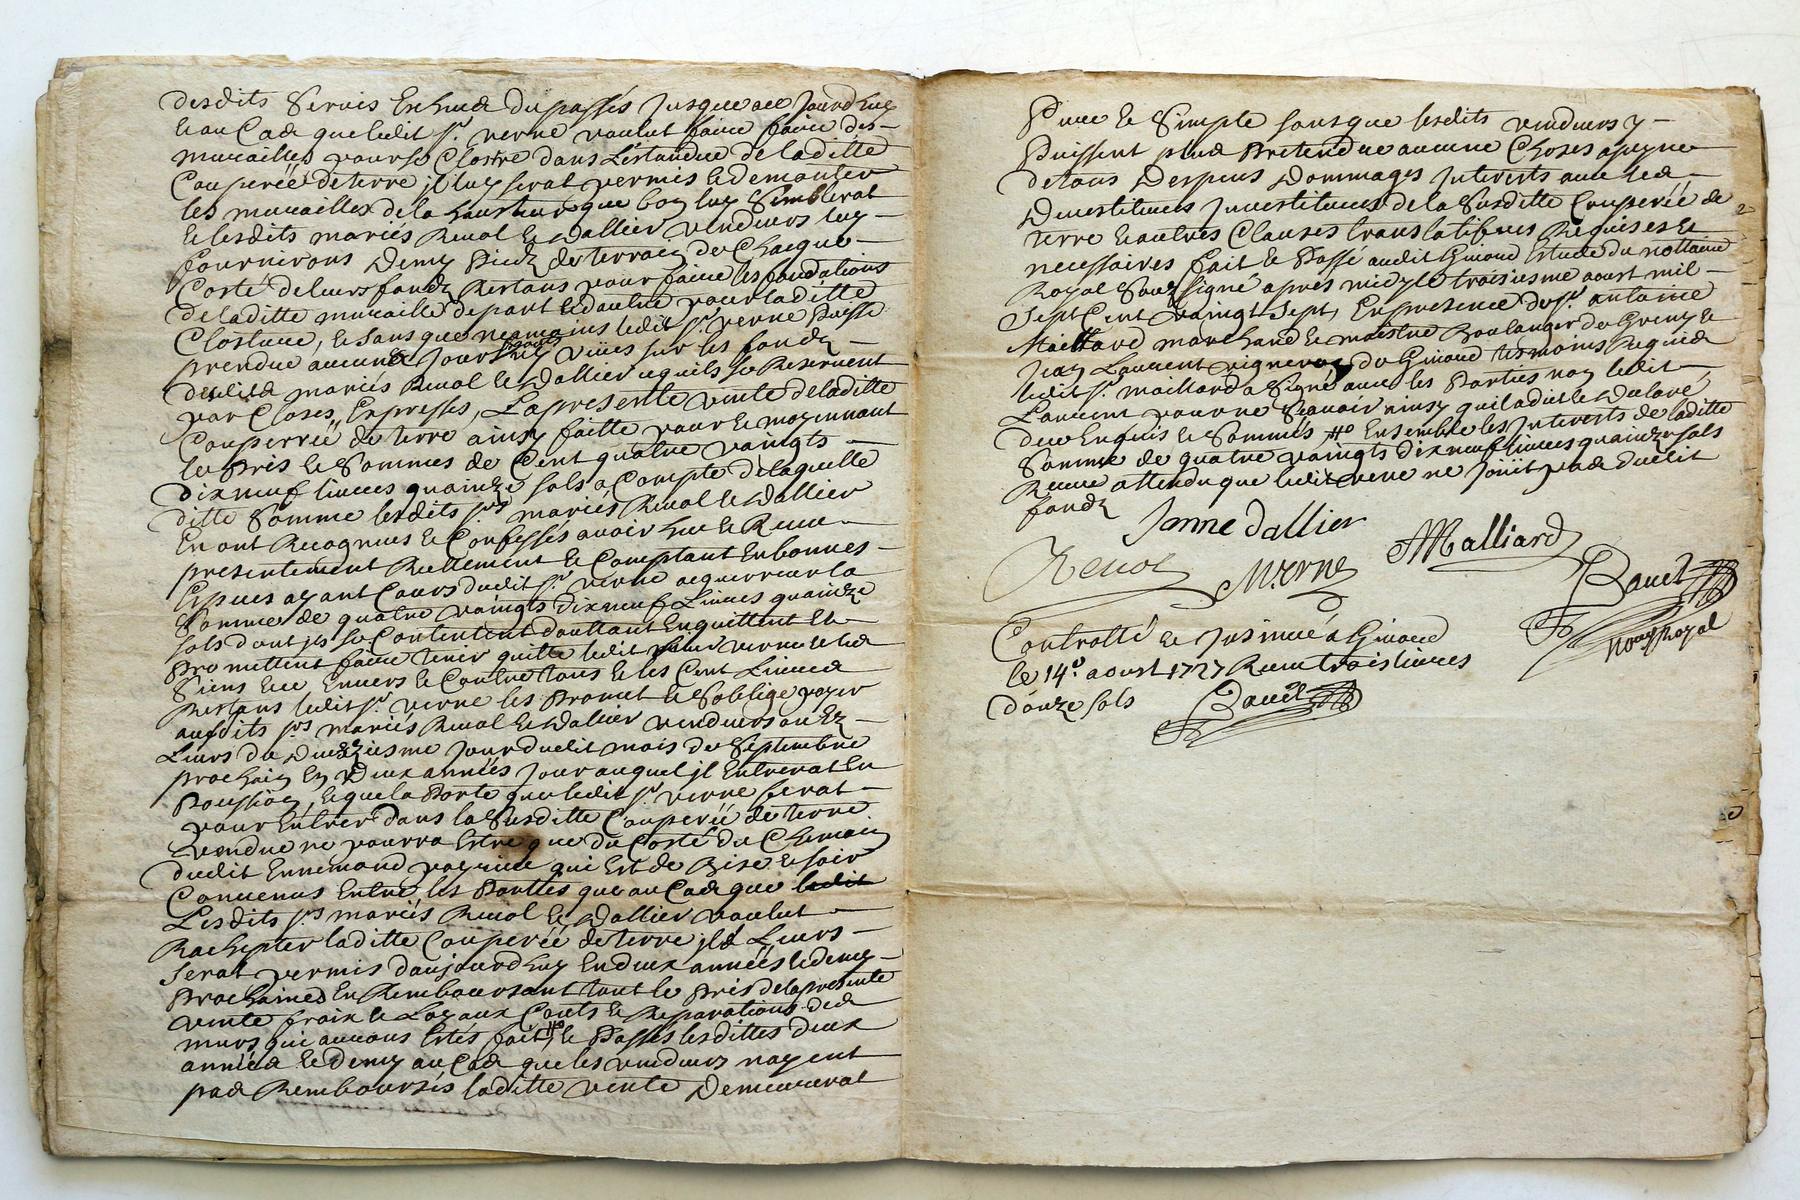 desdits Servis Escheus du passés Jusque au Jourdhuy
Et au Cas que ledit Sr. verne voulut faire faire des
murailles pour se Clostre dans L'estandue de laditte
Couperéé de terre jl luy serat permis de demonter
les murailles de la hauteur que bon luy Semblerat
& lesdits mariés Renol & Dallier vendeurs luy
fourniront Demy Pied de terrain de Chaque
Costé de leurs fonds Restans pour faire les fondations
de laditte muraille de part & d'autre pour laditte
Closture, & sans que neamoins ledit Sr. verne Puisse
prendre aucuns Jours ny viies sur les fonds
desdits mariés Renol & Dallier cequils se Reservent
par Closes Expresses, La presente vente de laditte
Couperréé de terre ainsy faitte pour & moyennant
le Pris & Sommes de Cent quatre vaingts
dix neuf livres quainze sols a Compte de laquelle
ditte Somme lesdits Srs mariés Renol & Dallier
En ont Recognus & Confessés avoir heu & Receu
presentement Reellement & Comptant En bonnes
Especes ayant Cours dudit Sr. verne acquerreur la
Somme de quatre vaingts dix neuf Livres quainze
sols dont jls se Contentent douttant En quittent &
Promettent faire tenir quitte ledit verne & les
Siens Envers & Contre tous & les Cent Livres
Restans ledit Sr. verne les Promet & S'oblige payer
ausdits Srs mariés Renol & Dallier vendeurs ou Es
Leurs du Jour dudit mois de Septembre
prochain En Deux annéés Jour auquel jl Entrerat En
Possession, & que la Porte que ledit Sr. verne ferat
pour Entrer dans la Susditte Couperéé de terre
vendue ne pourra Estre que du Costé du Chemain
dudit Ennemond qui Est de Bise & soir
Convenus Entre les Parties que au Cas que ledit
Lesdits Srs mariés Renol & Dallier voulut
Rachepter laditte Couperéé de terre jls Leurs
serat permis daujourdhuy En deux annéés & demy
Prochaines En Remboursant tout le Pris de la presente
vente fraix & Loyaux Couts & Reparations des
murs qui auront Estés fait & Passés lesdittes deux
annéés & Demy au Cas que les vendeurs nayent
pas Remboursés laditte vente Demeurerat
Pure & Simple sans que lesdits vendeurs y
Puissent plus Pretendre aucune Choses a peyne
de tous Despens Dommages Interests avec les
Devestitures Investitures de la Susditte Couperéé de
terre & autres Clauses translatifves Requises &
necessaires fait & Passé audit Givord Estude du nottaire
Royal Sousigné apres midy le troisiesme aoust mil
Sept Cent vaingt Sept, En presence de Sr. antoine
Maillard marchand & maistre Boulanger de Greny &
Jean Laurent vigneron de Givord tesmoins Requis
ledit Sr. maillard a Signé avec les Parties non ledit
Laurent pour ne Scavoir ainsy quil a dit & Declaré
deue Enquis & Sommés # Ensemble les Interests de laditte
Somme de quatre vaingts dix neuf livres quainze sols
Receue attendu que ledit verne ne jouit pas dudit
fonds
Jenne dallier
Renol
Mverne
AMalliard
Bauet
nore Royal
Controllé & Insinué a Givord
le 14e aoust 1727 Receu trois livres
douze sols
Bauet